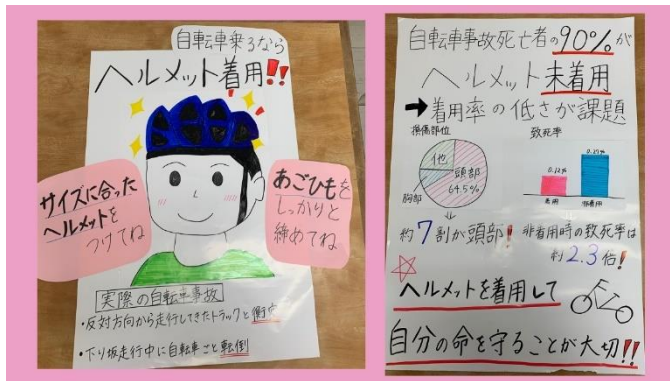 自転車乗るなら
ヘルメット着用!!
サイズに合った
ヘルメットを
つけてね
あごひもを
しっかりと
締めてね
実際の自転車事故
・反対方向から走行してきたトラックと衝突
・下り坂走行中に自転車ごと転倒
自転車事故死亡者の90%が
ヘルメット未着用
→着用率の低さが課題
損傷部位
他
頭部
64.5%
胸部
約7割が頭部!
致死率
着用
非着用
非着用時の致死率は
約2.3倍!
ヘルメットを着用して
自分の命を守ることが大切!!